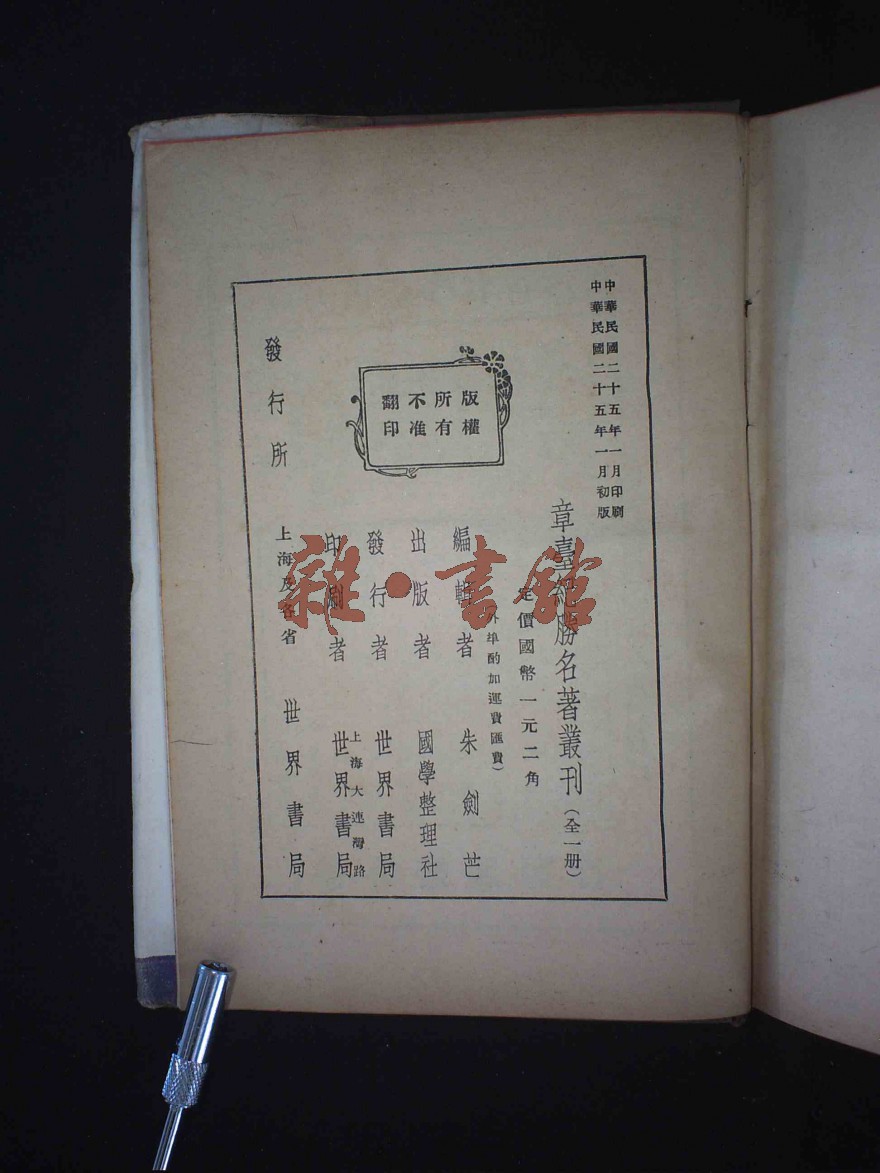 中華民國二十五年一月印刷
中華民國二十五年一月初版
章臺紀勝名著叢刊（全一册）
定價國幣一元二角
外埠酌加運費匯費）
編輯者 朱劍芒
出版者 國學整理社
發行者 世界書局
上海大連灣路
印刷者 世界書局
發行所 上海及各省 世界書局
版權
所有
不准
翻印
雜·書館